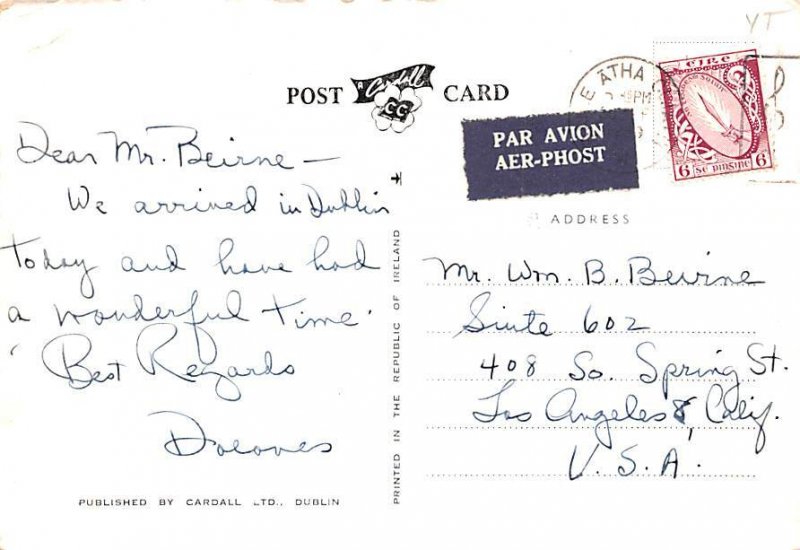 YT
POST CARD
Cardall
CC
E ÁTHA
PM
9
éire
6 Sé pinsine 6
PAR AVION
AER-PHOST
Dear Mr. Beirne —
We arrived in Dublin
today and have had
a wonderful time.
Best Regards
Dolores
PUBLISHED BY CARDALL LTD., DUBLIN
PRINTED IN THE REPUBLIC OF IRELAND
ADDRESS
Mr. Wm. B. Beirne
Suite 602
408 So. Spring St.
Los Angeles 8, Calif.
U.S.A.